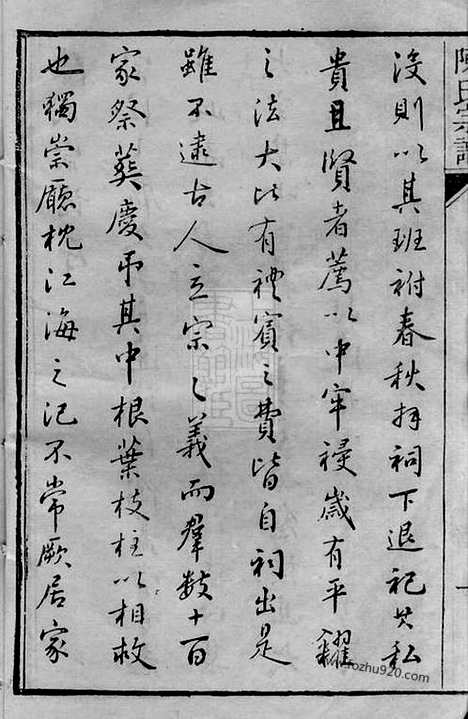 陳氏宗譜
沒則以其班祔春秋拜祠下退祀其私
貴且賢者薦以中牢祲歲有平糴
之法大比有禮賓之費皆自祠出是
雖不逮古人立宗之義而羣數十百
家祭葬慶弔其中根葉枝柱以相救
也獨崇廳枕江海之氾不常厥居家
www.rozhu920.com